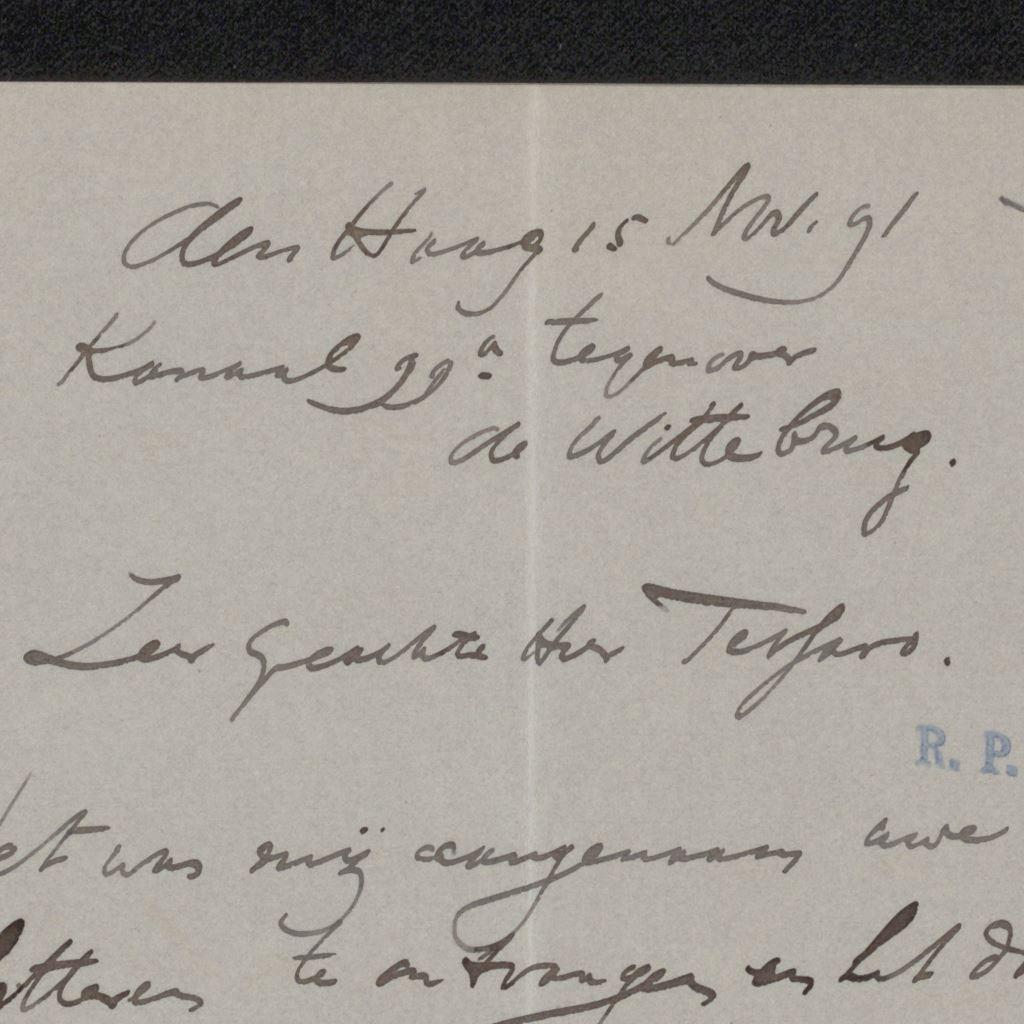 den Haag 15 Nov. 91
Kanaal 99a tegenover
de Wittebrug.
Zeer Geachte Heer Tessaro.
R. P.
Het was mij aangenaam uwe
letteren te ontvangen en het